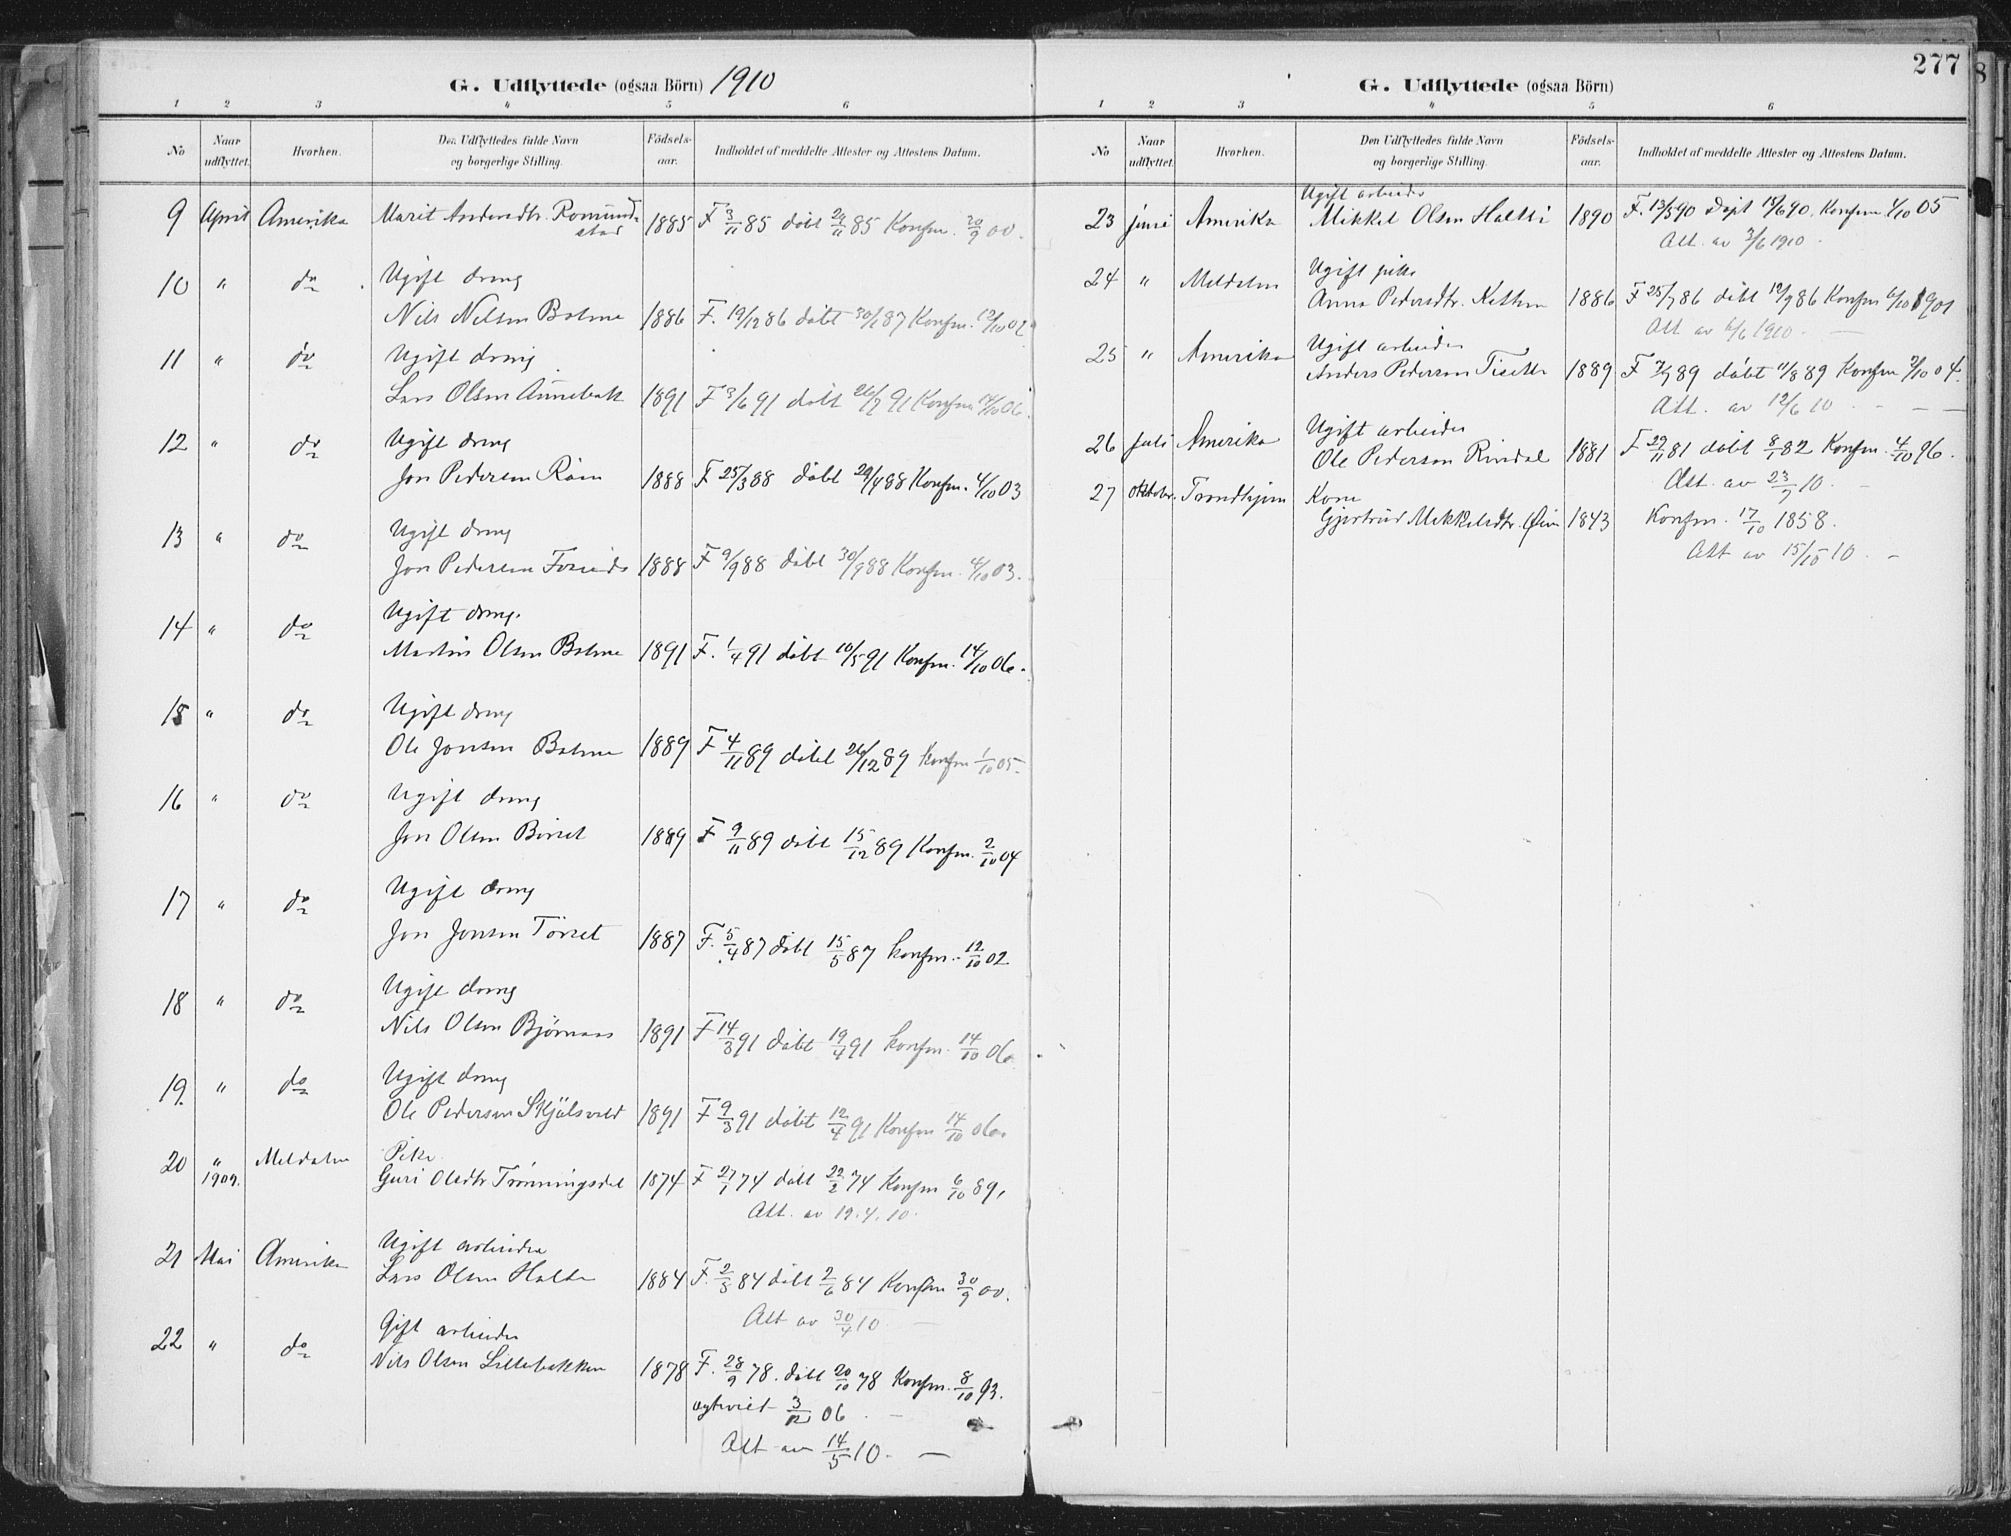 G. Udflyttede (ogsaa Börn) 1910
1 2 3 4 5 6
No Naar udflyttet. Hvorhen. Den Udflyttedes fulde Navn og borgerlige Stilling. Födsels-aar. Indholdet af meddelte Attester og Attestens Datum.
9 April Amerika Marit Andersdtr. Romund-stad 1885 F 3/11 85 døbt 29/11 85 Konfm. 30/9 00.
10 " do Ugift dreng
Nils Nilsen Bolme 1886 F. 19/12 86 døbt 30/1 87 Konfm. 12/10 02
11 " do Ugift dreng
Lars Olsen Aunebak 1891 F 3/6 91 døbt 26/7 91 Konfm 14/10 06.
12 " do Ugift dreng
Jon Pedersen Røen 1888 F 25/3 88 døbt 29/4 88 Konfm. 4/10 03
13 " do Ugift dreng
Jon Pedersen 1888 F 9/9 88 døbt 30/9 88 Konfm. 4/10 03.
14 " do Ugift dreng.
Martin Olsen Bolme 1891 F. 1/4 91 døbt 10/5 91 Konfm. 14/10 06.
15 " do Ugift dreng
Ole Jonsen Bolme 1889 F 4/11 89 døbt 26/12 89 Konfm 1/10 05.
16 " do Ugift dreng
Jon Olsen Børset 1889 F 9/11 89 døbt 15/12 89 Konfm. 2/10 04
17 " do Ugift dreng
Jon Jonsen Tørset 1887 F. 5/4 87 døbt 15/5 87 konfm. 12/10 02
18 " do Ugift dreng
Nils Olsen Bjørnaas 1891 F 14/3 91 døbt 19/4 91 konfm. 14/10 06.
19. " do Ugift dreng
Ole Pedersen Skjølsvold 1891 F 9/3 91 døbt 12/4 91 Konfm 14/10 06.
20 " 1909. Meldalen Pike.
Guri Olsdtr Trønningsdal 1874 F 27/1 74 døbt 22/2 74 Konfm 6/10 89,
Att. av 19.4.10.
21 Mai Amerika Ugift arbeider
Lars Olsen Halte 1884 F. 2/5 84 døbt 2/6 84 Konfm 30/9 00.
Att av 30/4 10
22 " do Gift arbeider
Nils Olsen Lillebakken 1878 F. 28/9 78. døbt 20/10 78 Konfm. 8/10 93.
egteviet 3/12 06.
Att av 14/5 10.
277
G. Udflyttede (ogsaa Börn)
1 2 3 4 5 6
No Naar udflyttet. Hvorhen. Den Udflyttedes fulde Navn og borgerlige Stilling. Födsels-aar. Indholdet af meddelte Attester og Attestens Datum.
Ugift arbeider
23 juni Amerika Mikkel Olsen 1890 F. 13/5 90 Døpt 15/6 90. Konfm 1/10 05
Att. av 3/6 1910.
24 " Meldalen Ugift pike
Anna Pedersdtr. 1886 F 25/7 86 døbt 19/9 86 Konfm 6/10 1901
Att av 6/6 1910.
25 " Amerika Ugift arbeider
Anders Pedersen 1889 F 7/7 89 døbt 11/8 89 Konfm 2/10 04.
Att. av 12/6 10.
26 Juli Amerika Ugift arbeider
Ole Pedersen Rindal 1881 F 29/11 81 døbt 8/1 82 Konfm. 4/10 96.
Att. av 23/7 10.
27 Oktober. Trondhjem Kone
Gjertrud Mikkelsdtr. Øien 1843 Konfm. 17/10 1858.
Att av 15/10 10.
8